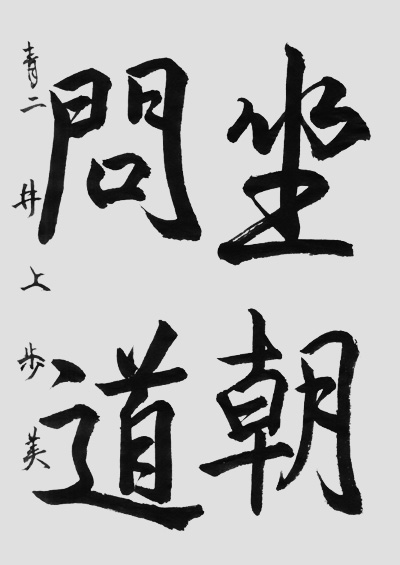 坐朝
問道
青二 井上歩美